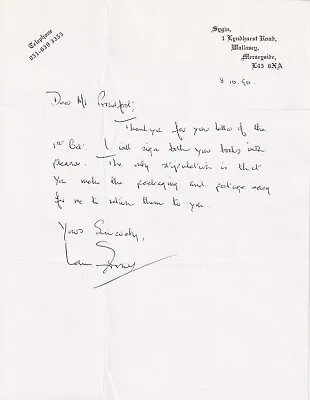 Telephone
051-639 3353
Sygun,
1 Lyndhurst Road,
Wallasey,
Merseyside,
L45 6XA
8.10.90.
Dear Mr
Thank you for your letter of the
1st Oct. I will sign both your books with
pleasure. The only stipulation is that
you make the packaging and postage easy
for me to return them to you.
Yours Sincerely,